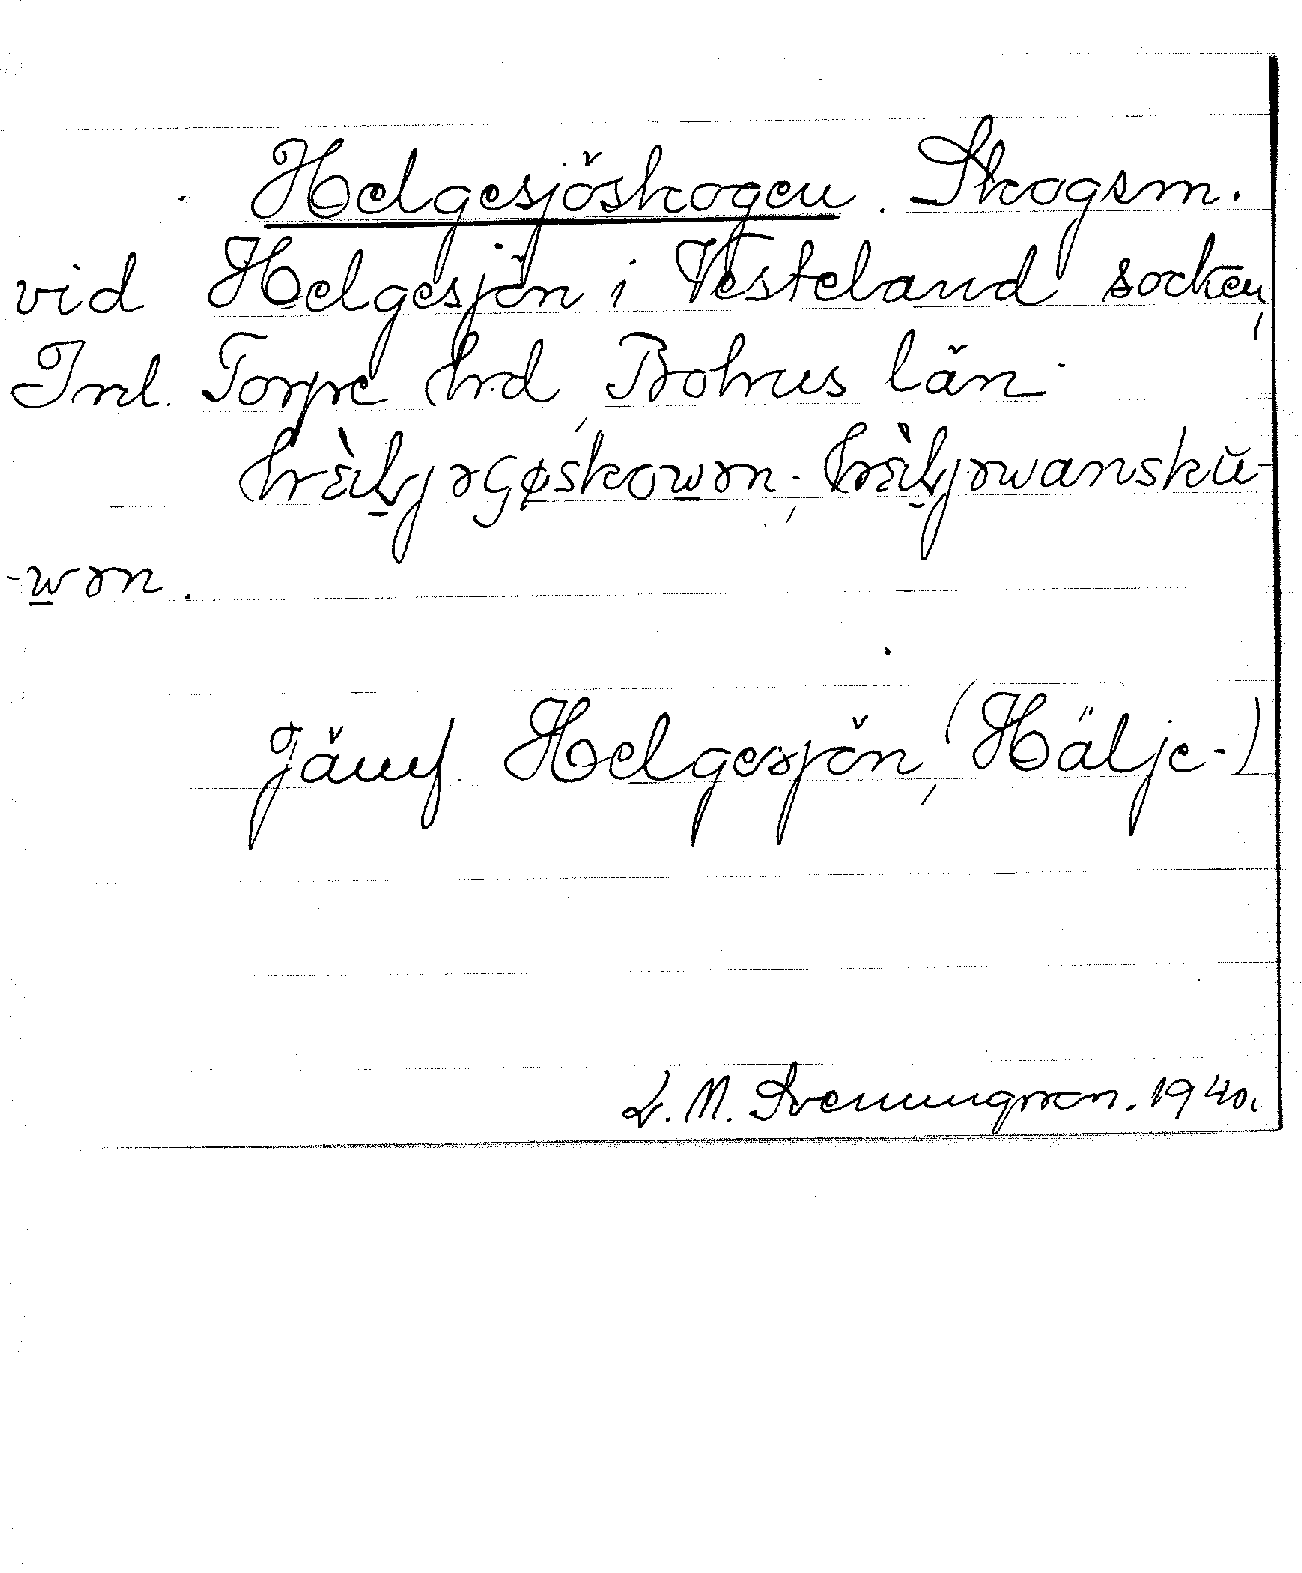 Helgesjöskogen. Skogsm.
vid Helgesjön i Vesteland socken,
Inl. Torpe hrd, Bohus län.
Jämf. Helgesjön, (Hälje-)
L. M. Svenungsson. 1940.